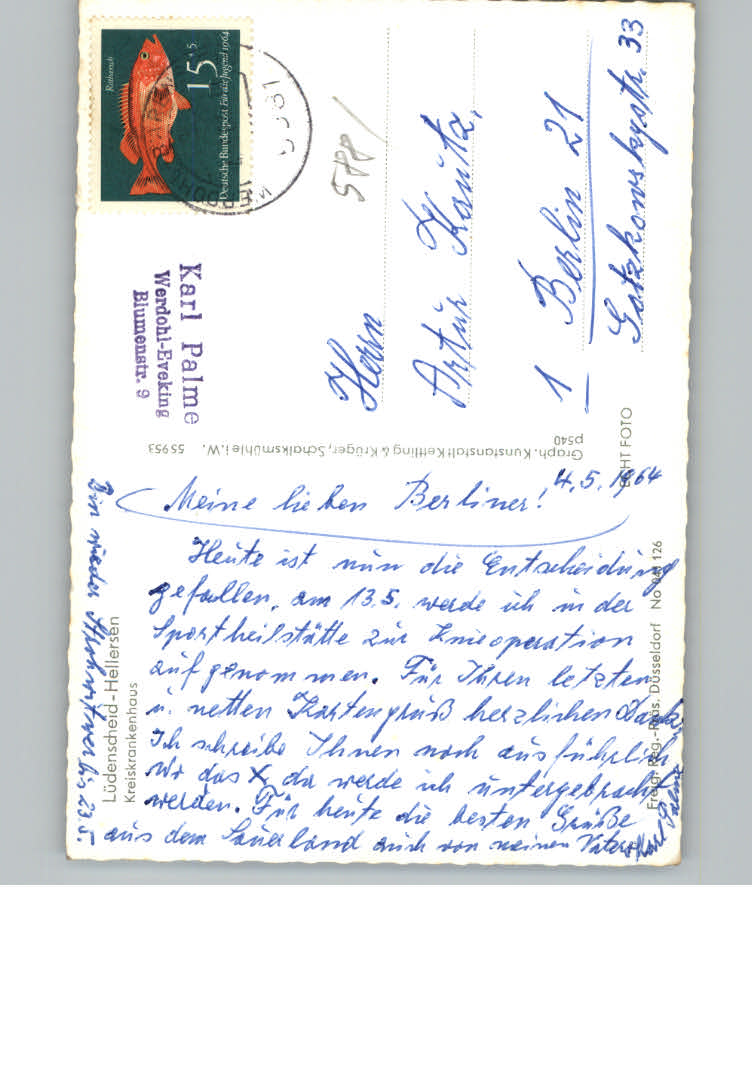 Rotbarsch
15+5
Deutsche Bundespost Für die Jugend 1964
588
Karl Palme
Werdohl-Eveking
Blumenstr. 9
Herrn
Artur Kautz,
1 Berlin 21
Gotzkowskystr. 33
Graph. Kunstanstalt Kettling & Krüger, Schalksmühle i. W. 55953
p540
ECHT FOTO
4. 5. 1964
Meine lieben Berliner!
Heute ist nun die Entscheidung
gefallen, am 13.5. werde ich in der
Sportheilstätte zur Knieoperation
aufgenommen. Für Ihren letzten
u. netten Kartengruß herzlichen Dank.
Ich schreibe Ihnen noch ausführlich
Wo das X da werde ich untergebracht
werden. Für heute die besten Grüße
aus dem Sauerland auch von meinen Vater
Karl Palme
Bin wieder bis 23.5.
Lüdenscheid-Hellersen
Kreiskrankenhaus
Freig. Reg.-Präs. Düsseldorf No 126